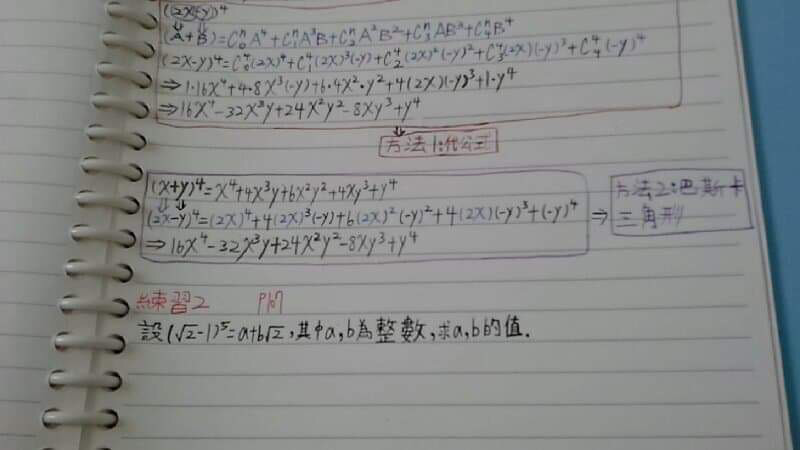 (2x-y)⁴
(A+B)=C₀ⁿA⁴+C₁ⁿA³B+C₂ⁿA²B²+C₃ⁿAB³+C₄ⁿB⁴
(2x-y)⁴=C₀⁴(2x)⁴+C₁⁴(2x)³(-y)+C₂⁴(2x)²(-y)²+C₃⁴(2x)(-y)³+C₄⁴(-y)⁴
⇒1·16x⁴+4·8x³(-y)+6·4x²·y²+4(2x)(-y)³+1·y⁴
⇒16x⁴-32x³y+24x²y²-8xy³+y⁴
方法1:代公式
(x+y)⁴=x⁴+4x³y+6x²y²+4xy³+y⁴
(2x-y)⁴=(2x)⁴+4(2x)³(-y)+6(2x)²(-y)²+4(2x)(-y)³+(-y)⁴ ⇒
⇒16x⁴-32x³y+24x²y²-8xy³+y⁴
方法2:巴斯卡
三角形
練習2 P167
設(√2-1)⁵=a+b√2,其中a,b為整數,求a,b的值.